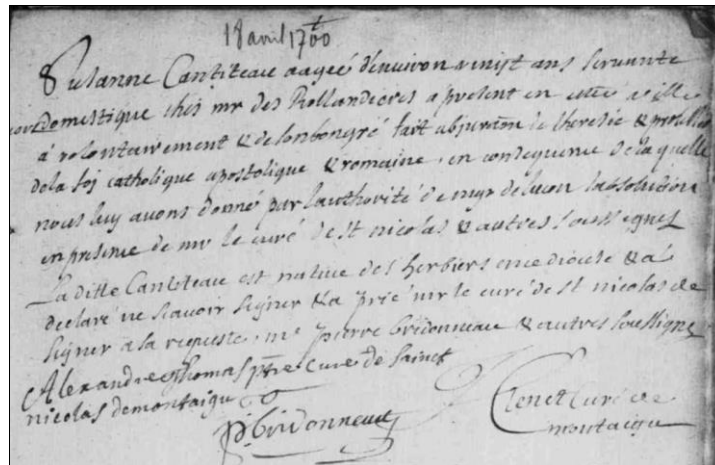 18 avril 1700
Susanne Cantiteau aageé d'environ vinjt ans servante
domestique chés mr des Rollandieres apresent en cette ville
á volontairement & de son bon gré fait abjuraõn de lheresie & proffession
de la foj catholique apostolique & romaine, en consequence de laquelle
nous luy avons donné par lauthorité de mgr de lucon labsolution
en presence de mr le curé de st nicolas & autres soussignes
La ditte Cantiteau est native des herbiers en ce diocese & a
declaré ne scavoir signer & a prié mr le curé de st nicolas de
signer a la requeste, me pierre bridonneau & autres soussignes
Alexandre Thomas ptre curé de sainct
nicolas de montaigu
P. bridonneau
curé de
montaigu